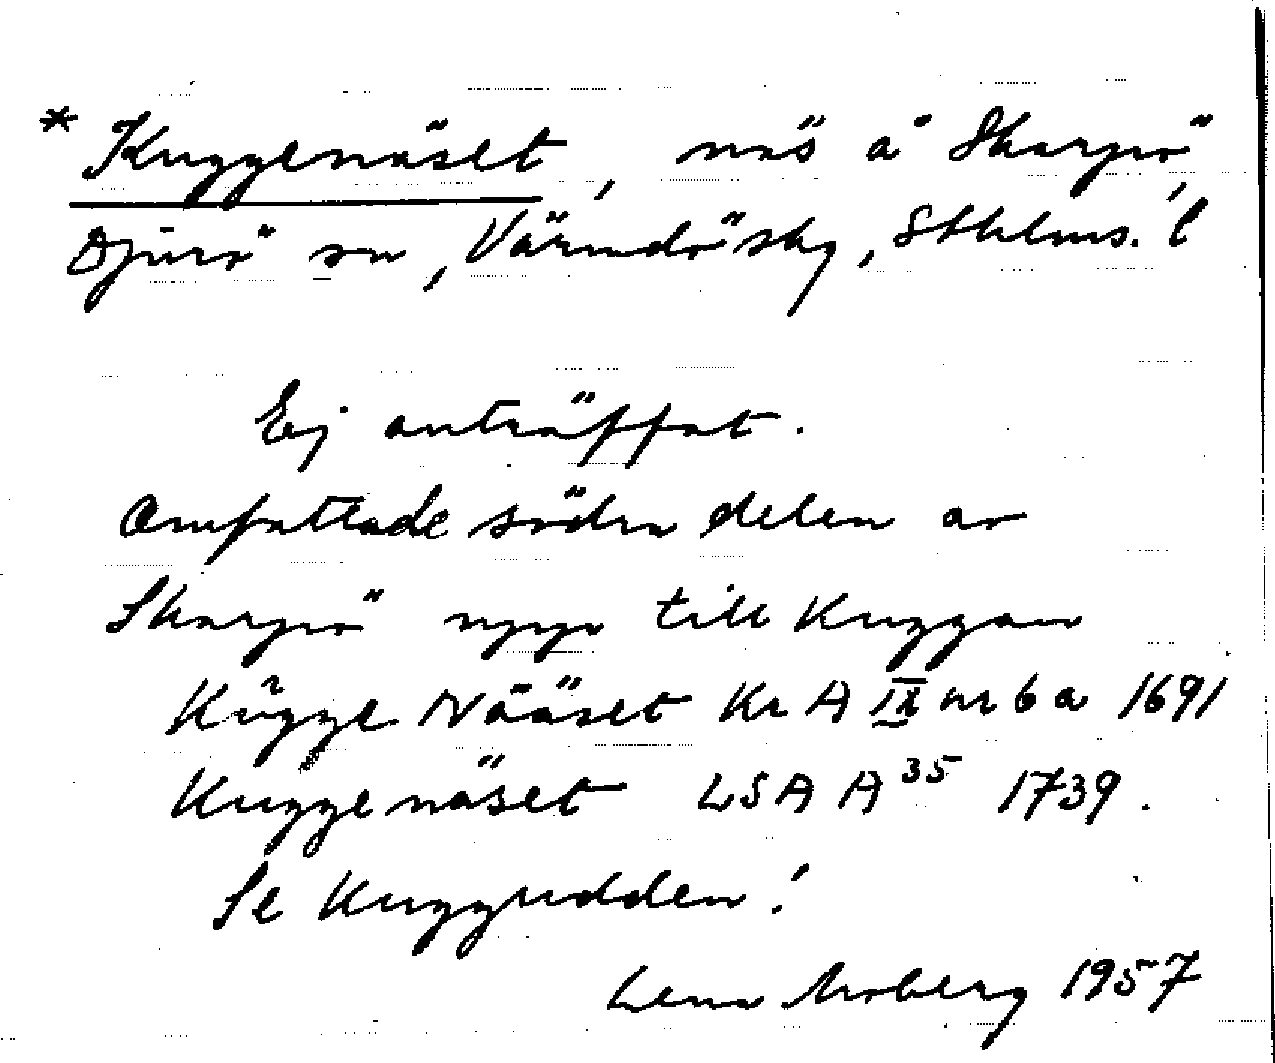 * Kuggenäset, näs å Skarpö,
Djurö sn, Värmdö skg, Sthlms. l
Ej anträffat.
Omfattade södra delen av
Skarpö upp till Kuggan
Kŭgge Nääset KrA IX nr 6a 1691
Kuggenäset LSA A 35 1739.
Se Kuggudden!
Lena Moberg 1957